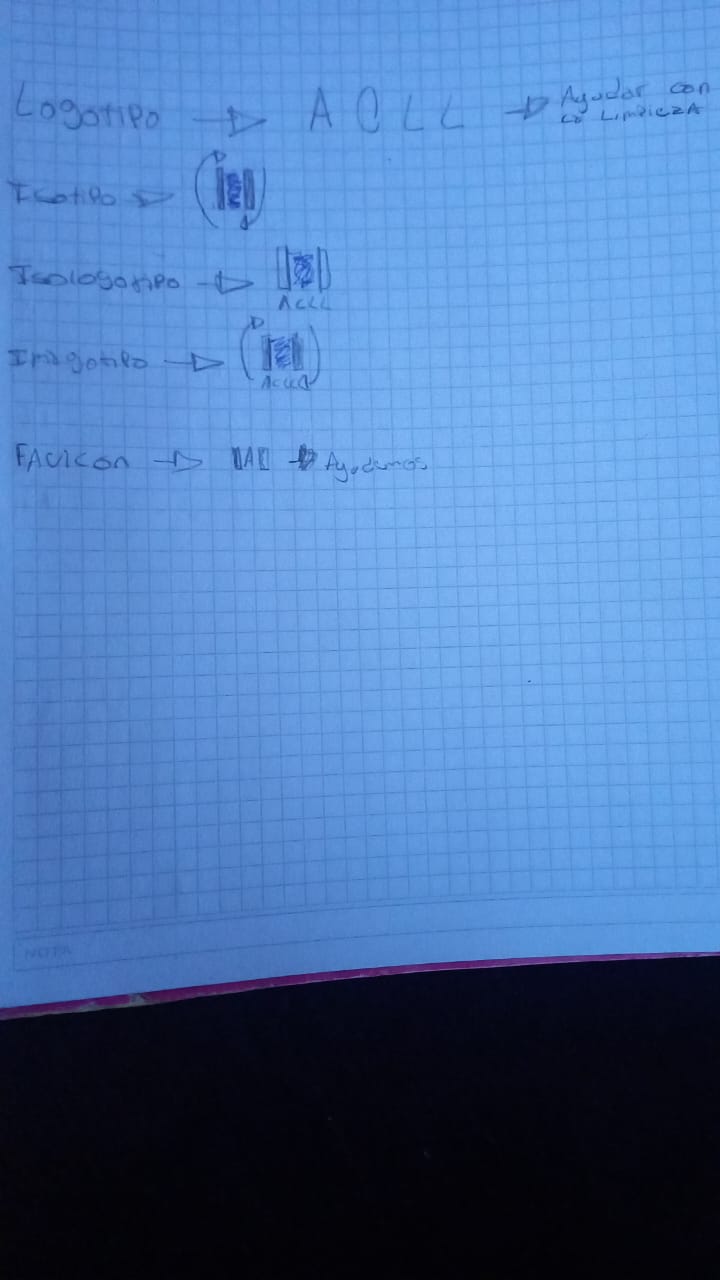 Logotipo A C L L Ayudar con
la Limpieza
Isotipo
Isologotipo
ACLL
Imagotipo
ACLL
FAVICON IAI Ayudamos
NOTA